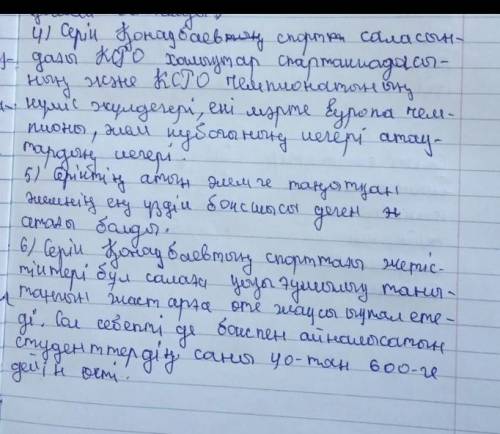 4) Серік Қонақбаевтың спорттық саласын-
дағы КСРО халықтар спартакиадасы-
ның және КСРО чемпионатының
күміс жүлдегері, екі мәрте Еуропа чем-
пионы, әлем кубогының иегері атау-
тардың иегері.
5) Серіктің атын әлемге танытқан
әлемнің ең үздік боксшысы деген
атағы болды.
6) Серік Қонақбаевтың спорттағы жетіс-
тіктері бұл салаға қызығушылық таны-
танын жастарға өте жақсы ықпал ете-
ді. Сол себепті де бокспен айналысатын
студенттердің саны 40-тан 600-ге
дейін өсті.